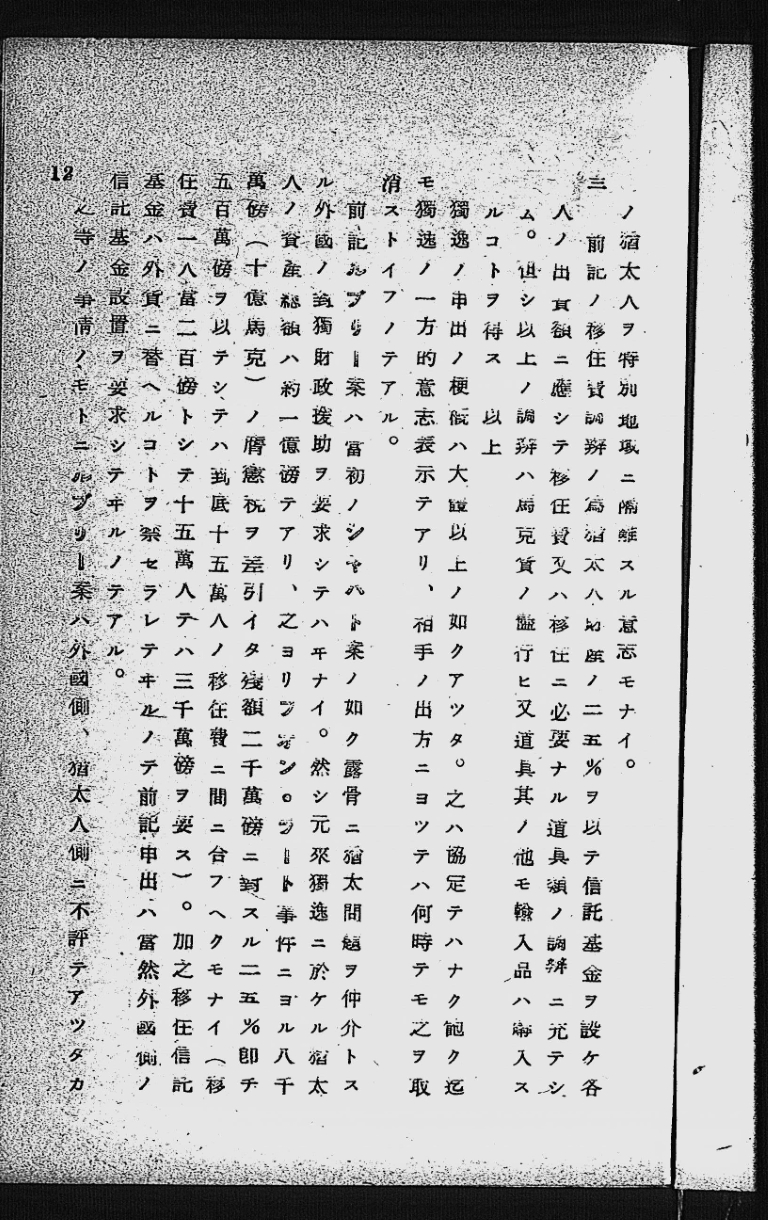 ノ猶太人ヲ特別地域ニ隔離スル意志モナイ。
三 前記ノ移住費調辨ノ爲猶太人財産ノ二五%ヲ以テ信託基金ヲ設ケ各
人ノ出資額ニ應シテ移住費又ハ移住ニ必要ナル道具類ノ調辨ニ充テシ
ム。但シ以上ノ調辨ハ馬克貨ノ ヒ又道具其ノ他モ輸入品ハ 入ス
ルコトヲ得ス 以上
獨逸ノ申出ノ梗概ハ大體以上ノ如クアツタ。之ハ協定テハナク飽ク迄
モ獨逸ノ一方的意志表示テアリ、相手ノ出方ニヨツテハ何時テモ之ヲ取
消ストイフノテアル。
前記ルブリー案ハ當初ノシヤハト案ノ如ク露骨ニ猶太問題ヲ仲介トス
ル外國ノ對獨財政援助ヲ要求シテハヰナイ。然シ元來獨逸ニ於ケル猶太
人ノ資産總額ハ約一億磅テアリ、之ヨリフオン。ラート事件ニヨル八千
萬磅(十億馬克)ノ膺懲税ヲ差引イタ殘額二千萬磅ニ對スル二五%卽チ
五百萬磅ヲ以テシテハ到底十五萬人ノ移住費ニ間ニ合フヘクモナイ(移
住費一人當二百磅トシテ十五萬人テハ三千萬磅ヲ要ス)。加之移住信託
基金ハ外貨ニ替ヘルコトヲ禁セラレテヰルノテ前記申出ハ當然外國側ノ
信託基金設置ヲ要求シテヰルノテアル。
之等ノ事情ノモトニルブリー案ハ外國側、猶太人側ニ不評テアツタカ
12